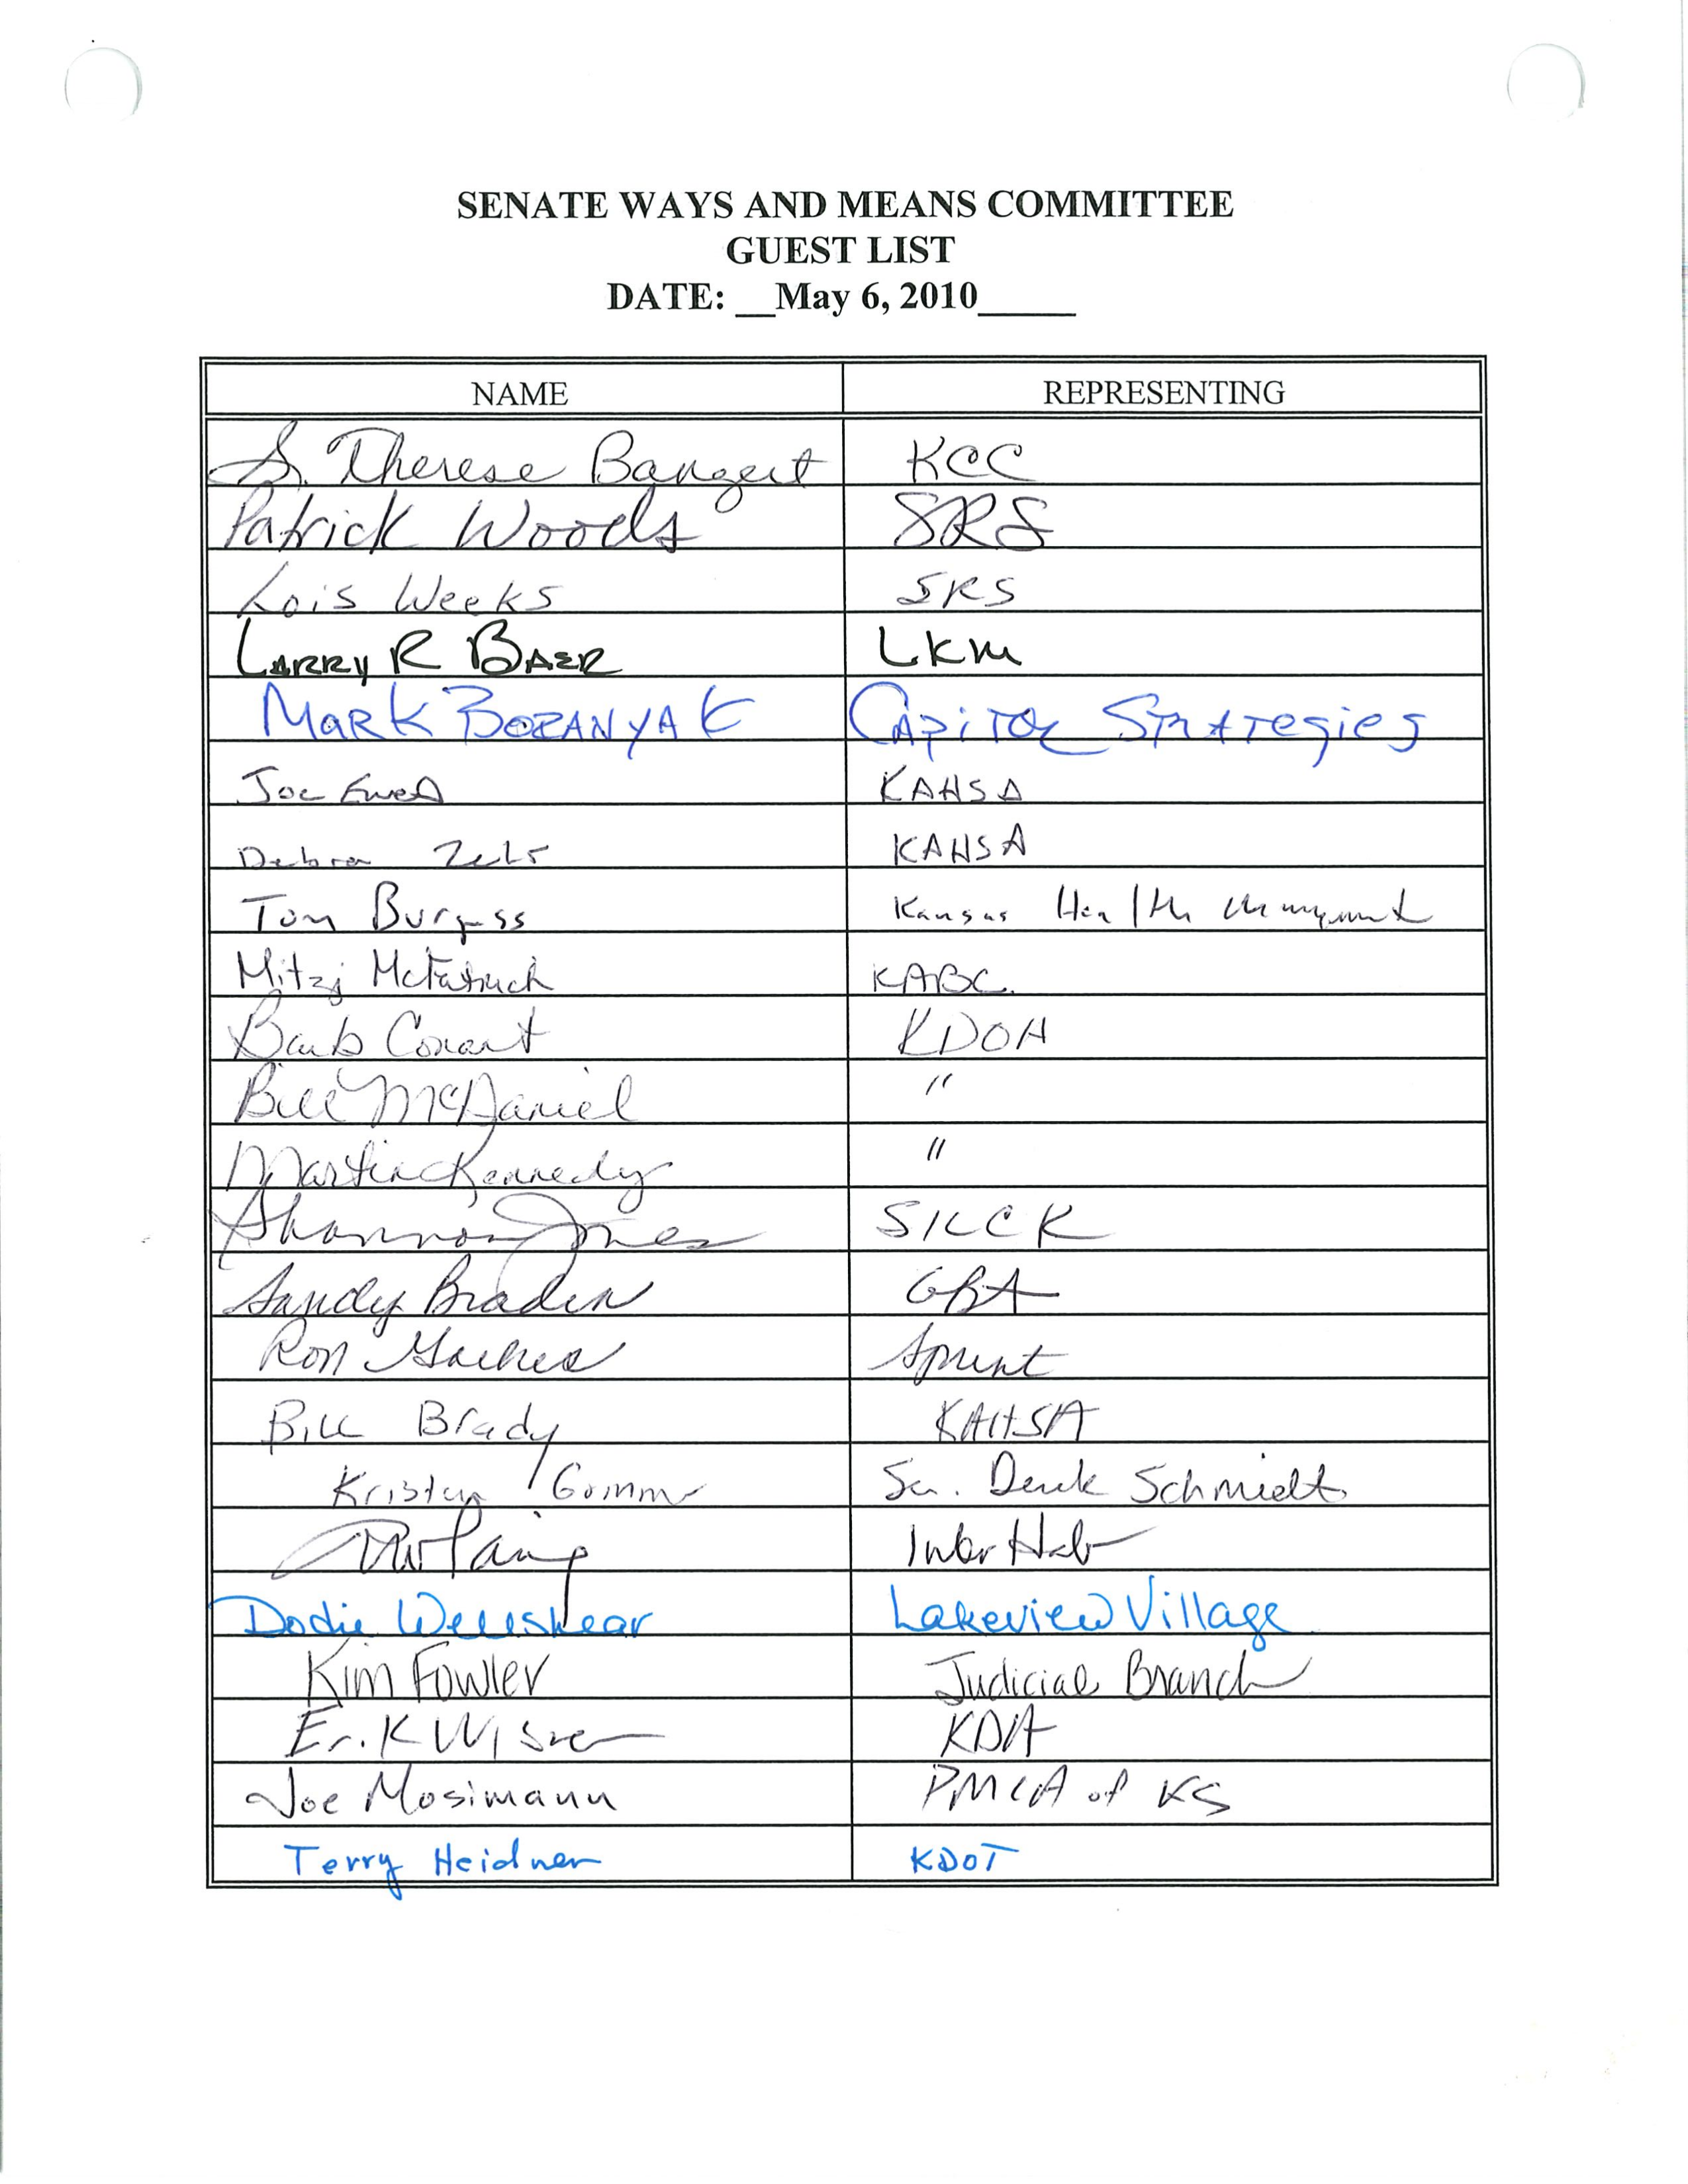 SENATE WAYS AND MEANS COMMITTEE
GUEST LIST
DATE: __May 6, 2010_____
NAME REPRESENTING
S. Therese Bangert KCC
Patrick Woods SRS
Lois Weeks SRS
LARRY R BAER LKM
MARK BOZANYAK CAPITOL STRATEGIES
Joe Ewert KAHSA
Debra Zehr KAHSA
Tom Burgess Kansas Health Management
Mitzi McFatrich KABC
Barb Conant KDOA
Bill McDaniel "
Martin Kennedy "
Shannon Jones SILCK
Sandy Braden GBA
Ron Gaches Sprint
Bill Brady KAHSA
Kristen Gomm Sen. Derek Schmidt
InterHab
Dodie Wellshear Lakeview Village
Kim Fowler Judicial Branch
Erik Wisner KDA
Joe Mosimann PMCA of KS
Terry Heidner KDOT